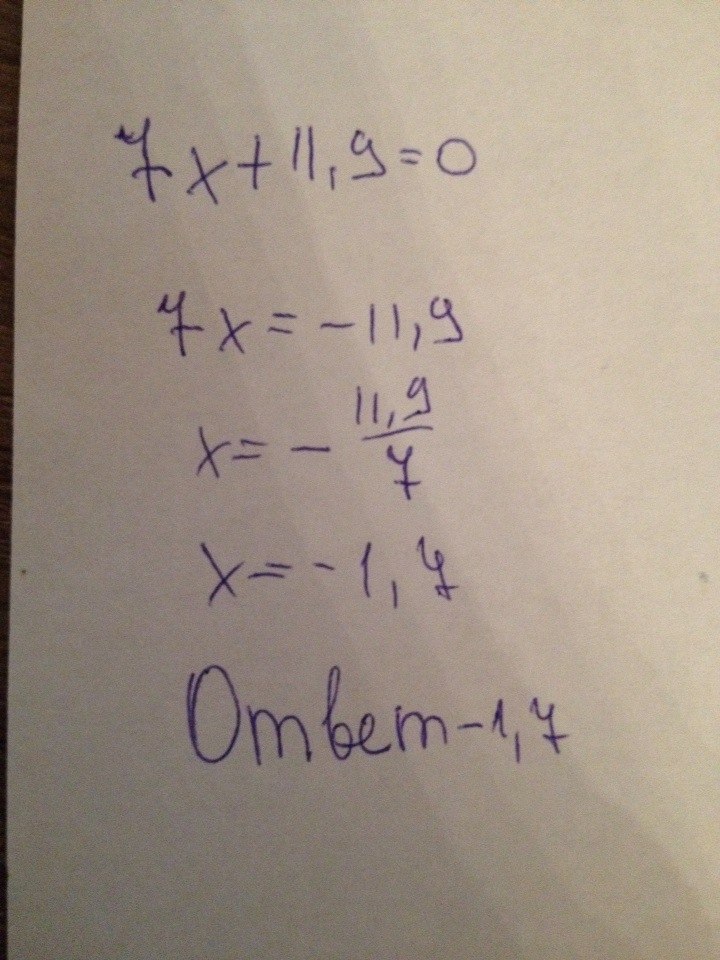 7x+11,9=0
7x=-11,9
x=-11,9/7
x=-1,7
Ответ-1,7